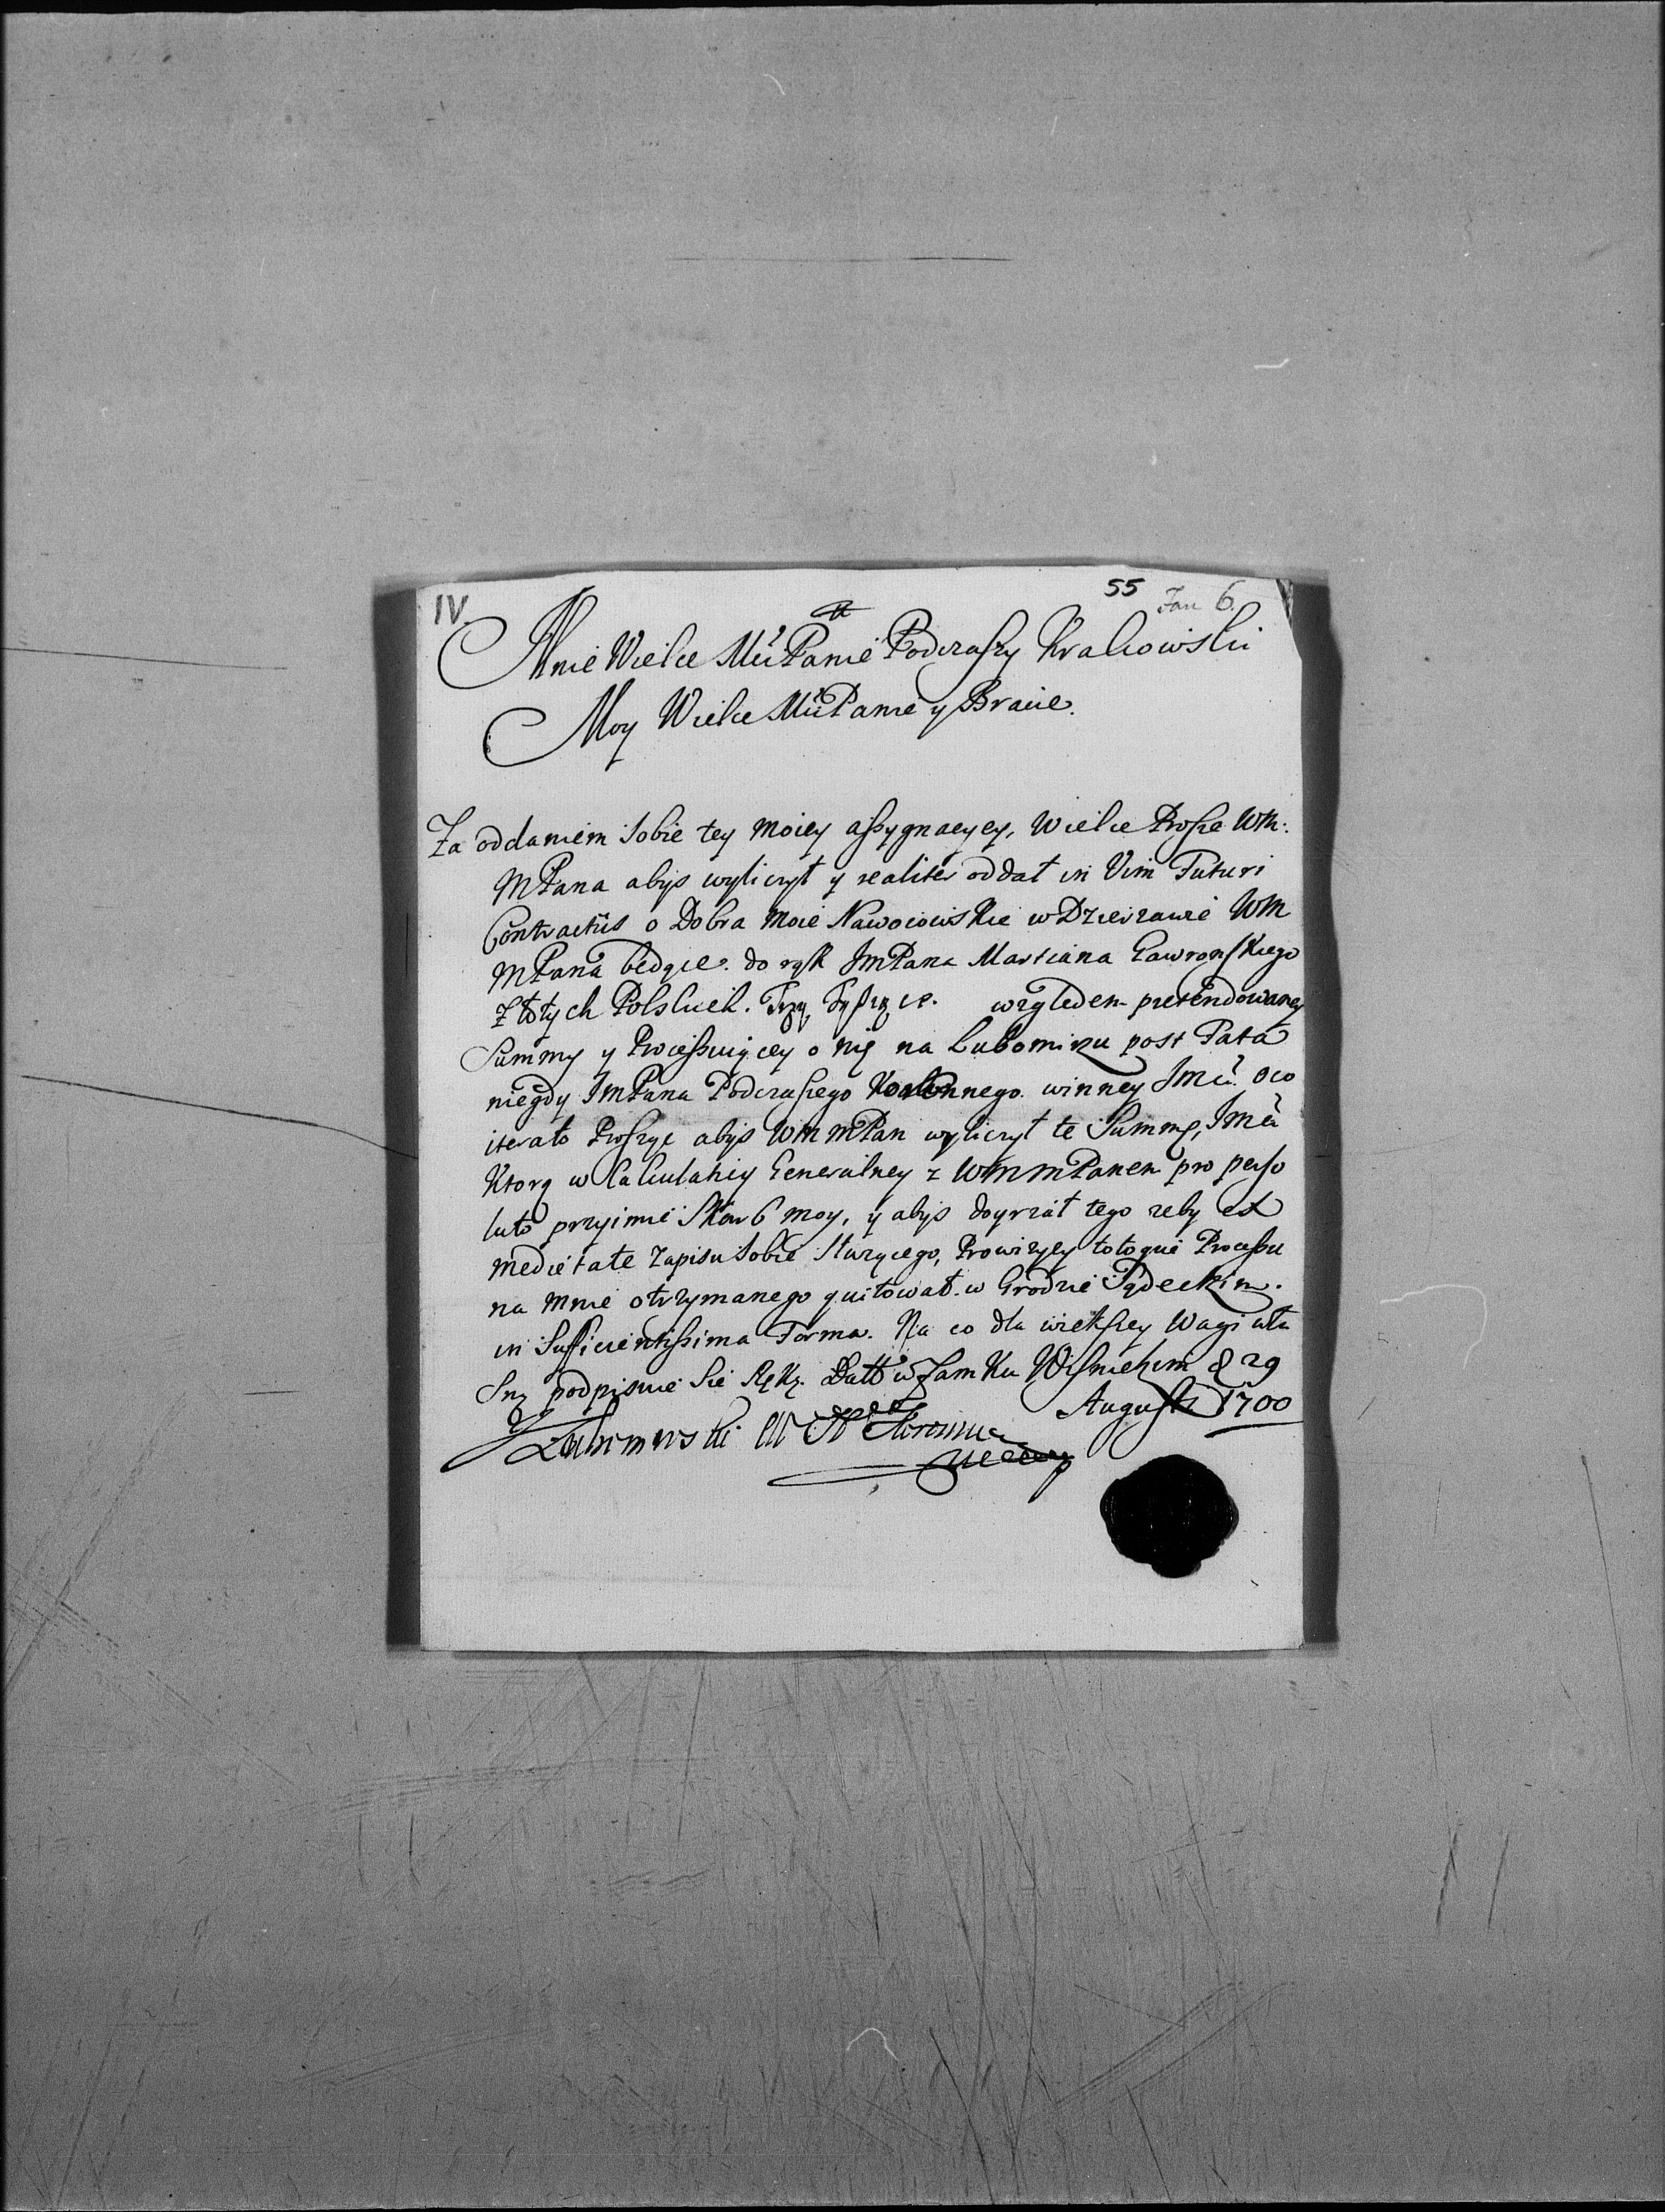 IV.
55 Jan 6.
Mnie Wielce Mći Panie Podczaszy Krakowski
Moy Wielce Mći Panie y Bracie.
Za oddaniem sobie tey moiey assygnacyey, Wielce Proszę WM:
MPana abyś wyliczył y realiter oddał in Vim Futuri
Contractus o Dobra moie Nawoiowskie w Dzierzawie WM
MPana będące. do rąk JmPana Marciana Gawrońskiego
Złotych Polskich. Trzy Tysiące. względem pretendowaney
Summy y Processuiącey o nię na Lubomirzu post Fata
niegdy JmPana Podczaszego Koronnego. winney Jmći. oco
iterato Proszę abyś WMMPan wyliczył te Summę, Jmći
Ktorą w Calculatiey Generalney z WMMPanem pro perso
luto przyimie Skarb moy, y abyś doyrzał tego zeby ex
medietate zapisu sobie słuzącego, Prowizyey totoque Processu
na mnie otrzymanego quitował. w Grodzie Sądeckim.
in Sufficientissima Forma. Na co dla większey wagi wła
sną podpisuię się Ręką. Datt w Zamku Wiśnickim d 29
Augusti 1700
Lubomirski